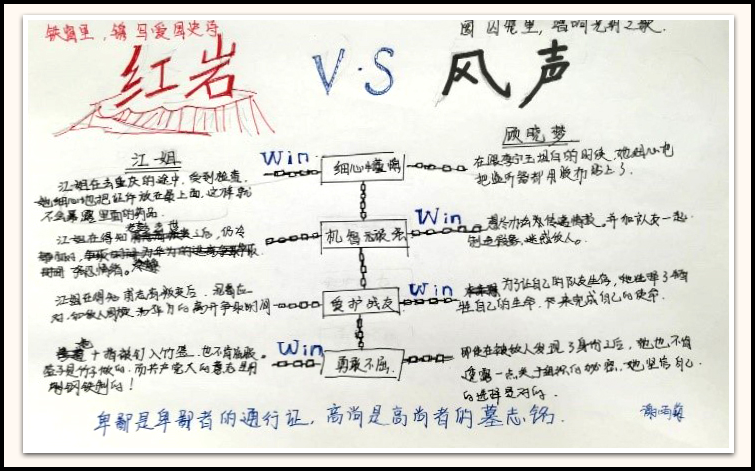 铁窗里，镌写爱国史诗
图囚笼里，唱响光明之歌.
红岩 V·S 风声
江姐
顾晓梦
Win
细心
江姐在去重庆的途中，受到检查.
她细心地把证件放在最上面，这样就
不会暴露里面的药品.
在跟李宁玉坦白的时候，她细心地
把监听器都用胶布贴上了.
Win
机智
江姐在得知
之后，仍冷
想尽办法去传递情报。并和队友一起
制造假象，迷惑敌人。
Win
爱护战友
江姐在得知甫志高叛变后
对，和敌人周旋，为华为的离开争取时间
为了让自己的队友生存，她选择了牺
牲自己的生命，下来完成自己的使命.
Win
勇敢不屈.
十指被钉入竹签，也不肯屈服。
签子是竹子做的，而共产党人的意志是用
钢铁制的！
即使在被敌人发现了身份之后，她也不肯
透露一点关于组织的秘密，她坚信自己
的选择是对的.
卑鄙是卑鄙者的通行证，高尚是高尚者的墓志铭.